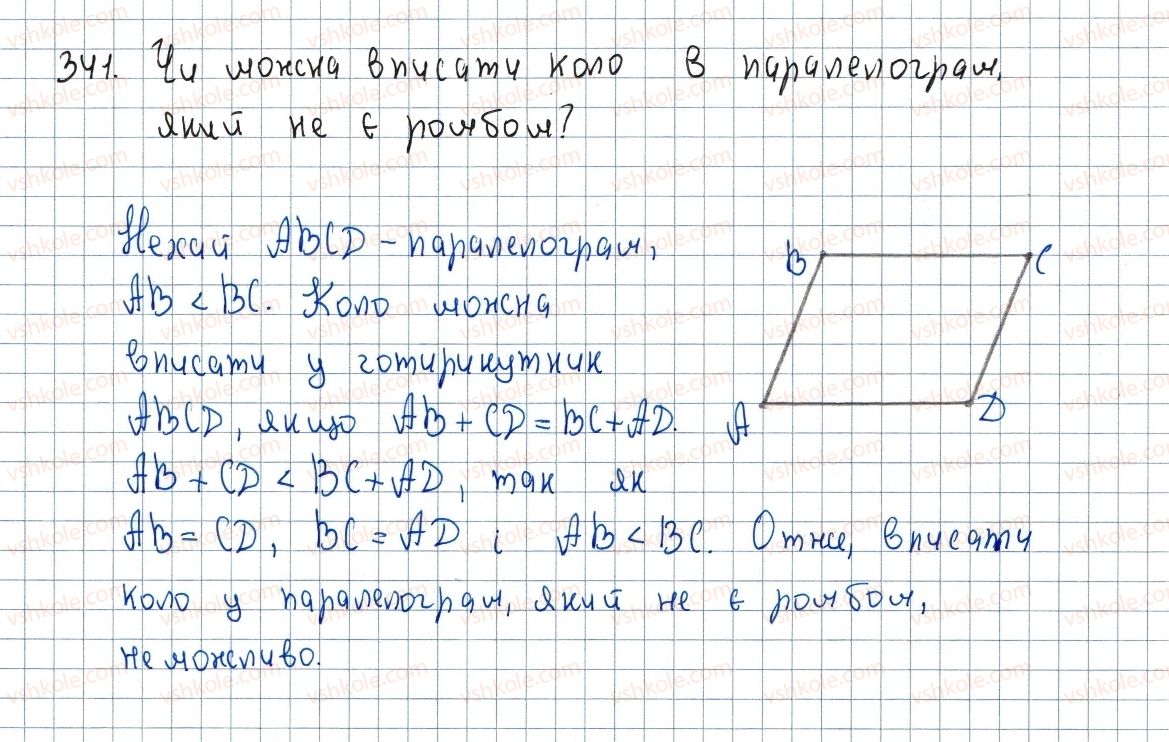 341. Чи можна вписати коло в паралелограм,
який не є ромбом?
Нехай ABCD – паралелограм,
AB < BC. Коло можна
вписати у готирикутник
ABCD, якщо AB + CD = BC + AD.
AB + CD < BC + AD, так як
AB = CD, BC = AD і AB < BC. Отже, вписати
коло у паралелограм, який не є ромбом,
неможливо.
B
C
A
D
vshkole.com